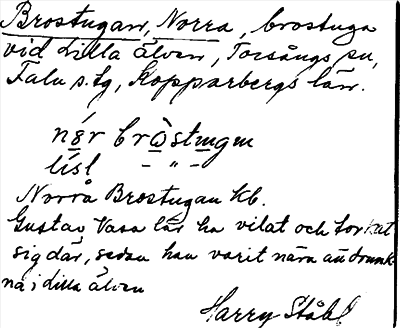 Brostugan, Norra, brostuga
vid Lilla Älven, Torsångs sn,
Falu s.tg, Kopparbergs län.
lísl – " –
Norra Brostugan Kb.
Gustav Vasa lär ha vilat och torkat
sig där, sedan han varit nära att drunk-
na i Lilla Älven
Harry Ståhl